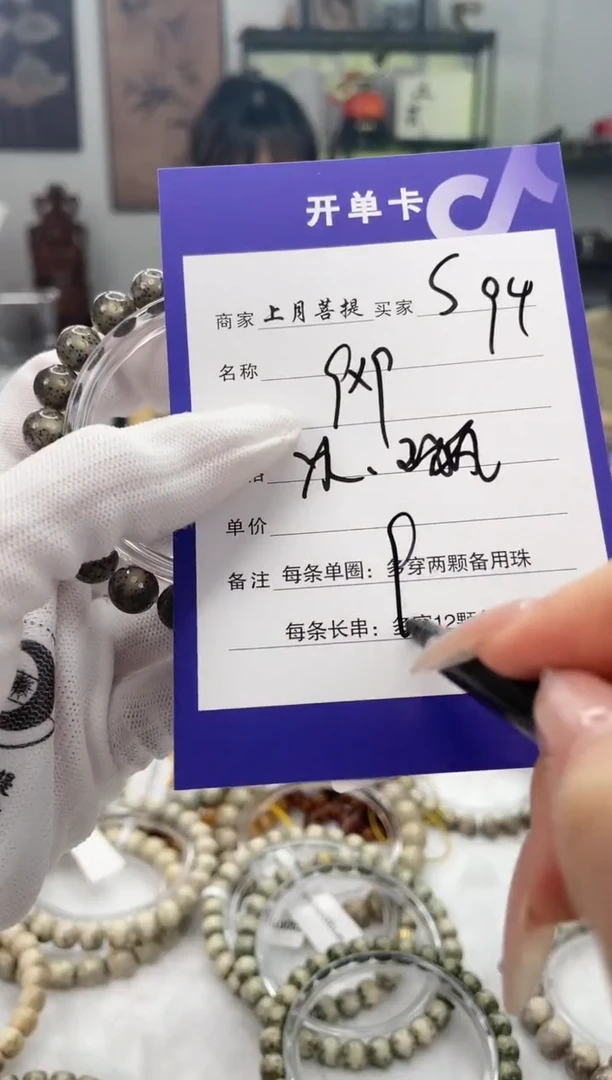 开单卡
商家 上月菩提 买家 S 94
名称 9x9
单价
备注 每条单圈：多穿两颗备用珠
每条长串：多穿12颗